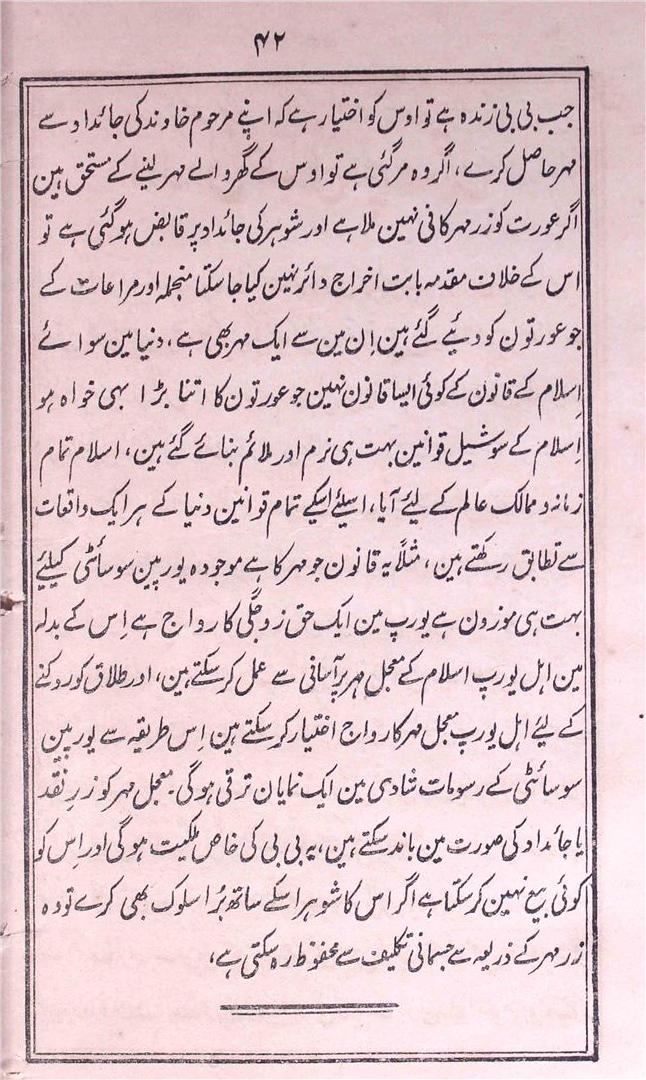 ۴۲
جب بی بی زندہ ہے تو اوس کو اختیار ہے کہ اپنے مرحوم خاوند کی جائداد سے
مہر حاصل کرے، اگر وہ مر گئی ہے تو اوس کے گھر والے مہر لینے کے مستحق ہین
اگر عورت کو زر مہر کافی نہین ملا ہے اور شوہر کی جائداد پر قابض ہو گئی ہے تو
اس کے خلاف مقدمہ بابت اخراج دائر نہین کیا جا سکتا منجملہ اور مراعات کے
جو عورتون کو دیئے گئے ہین اِن مین سے ایک مہر بھی ہے، دنیا مین سوائے
اِسلام کے قانون کے کوئی ایسا قانون نہین جو عورتون کا اتنا بڑا بہی خواہ ہو
اِسلام کے سوشیل قوانین بہت ہی نرم اور ملائم بنائے گئے ہین، اسلام تمام
زمانہ و ممالک عالم کے لیئے آیا، اسلیئے اسکے تمام قوانین دنیا کے ہر ایک واقعات
سے تطابق رکھتے ہین، مثلاً یہ قانون جو مہر کا ہے موجودہ یورپین سوسائٹی کیلیئے
بہت ہی موزون ہے یورپ مین ایک حق زوجگی کا رواج ہے اِس کے بدلہ
مین اہل یورپ اسلام کے معجل مہر پر آسانی سے عمل کر سکتے ہین، اور طلاق کو روکنے
کے لیئے اہل یورپ معجل مہر کا رواج اختیار کر سکتے ہین اِس طریقہ سے یورپین
سوسائٹی کے رسومات شادی مین ایک نمایان ترقی ہوگی۔ معجل مہر کو زرِ نقد
یا جائداد کی صورت مین باند سکتے ہین، یہ بی بی کی خاص ملکیت ہوگی اور اِس کو
کوئی بیع نہین کر سکتا ہے اگر اس کا شوہر اسکے ساتھ بُرا سلوک بھی کرے تو وہ
زر مہر کے ذریعہ سے جسمانی تکلیف سے محفوظ رہ سکتی ہے،